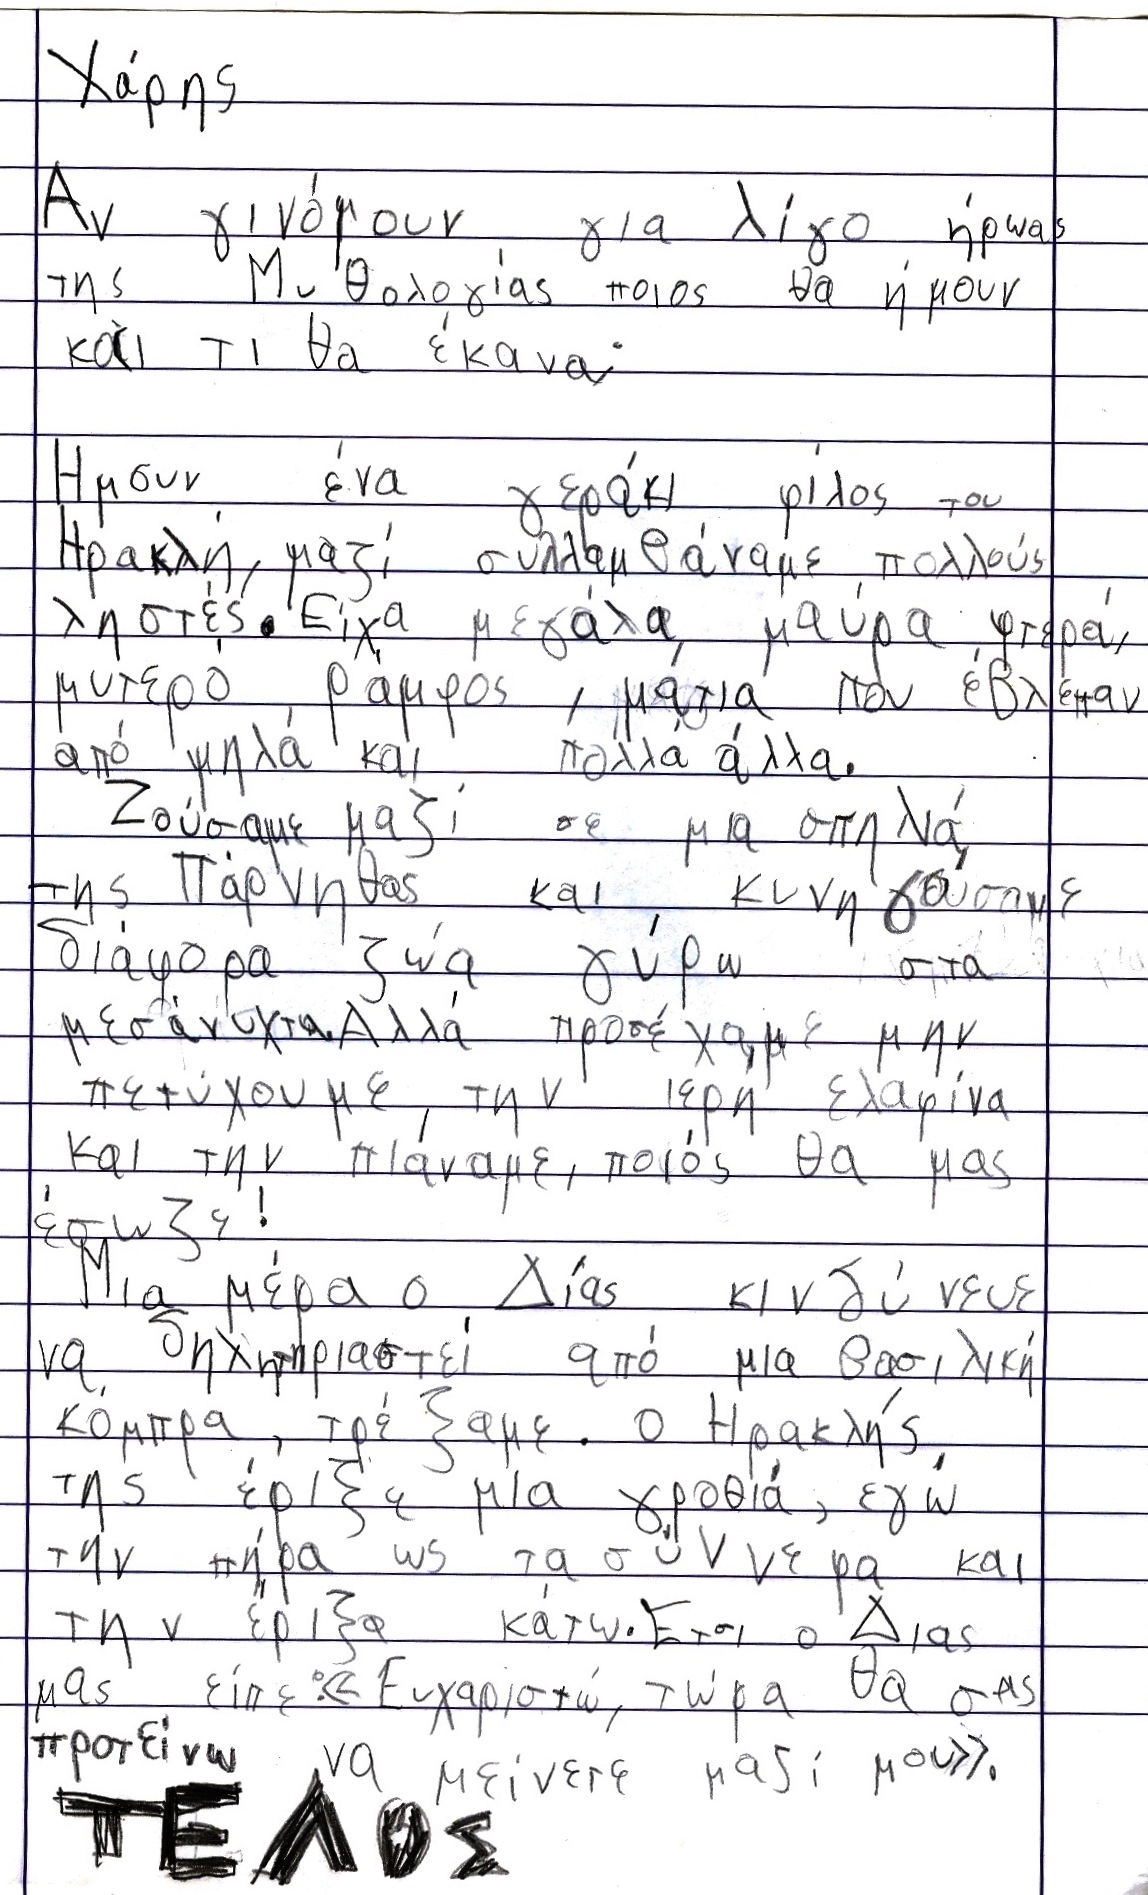 Χάρης
Αν γινόμουν για λίγο ήρωας
της Μυθολογίας ποιος θα ήμουν
και τι θα έκανα;
Ημουν ένα γεράκι φίλος του
Ηρακλή, μαζί συλλαμβάναμε πολλούς
ληστές. Είχα μεγάλα, μαύρα φτερά,
μυτερό ράμφος, μάτια που έβλεπαν
από ψηλά και πολλά άλλα.
Ζούσαμε μαζί σε μια σπηλιά,
της Πάρνηθας και κυνηγούσαμε
διάφορα ζώα γύρω στα
μεσάνυχτα. Αλλά προσέχαμε μην
πετύχουμε την ιερή ελαφίνα
και την πιάναμε, ποιός θα μας
έσωζε!
Μια μέρα ο Δίας κινδύνευε
να δηλητηριαστεί από μια βασιλική
κόμπρα, τρέξαμε. ο Ηρακλής
της έριξε μια γροθιά, εγώ
την πήρα ως τα σύννεφα και
την έριξα κάτω. Ετσι ο Διας
μας είπε: «Ευχαριστώ, τώρα θα σας
προτείνω να μείνετε μαζί μου».
ΤΕΛΟΣ